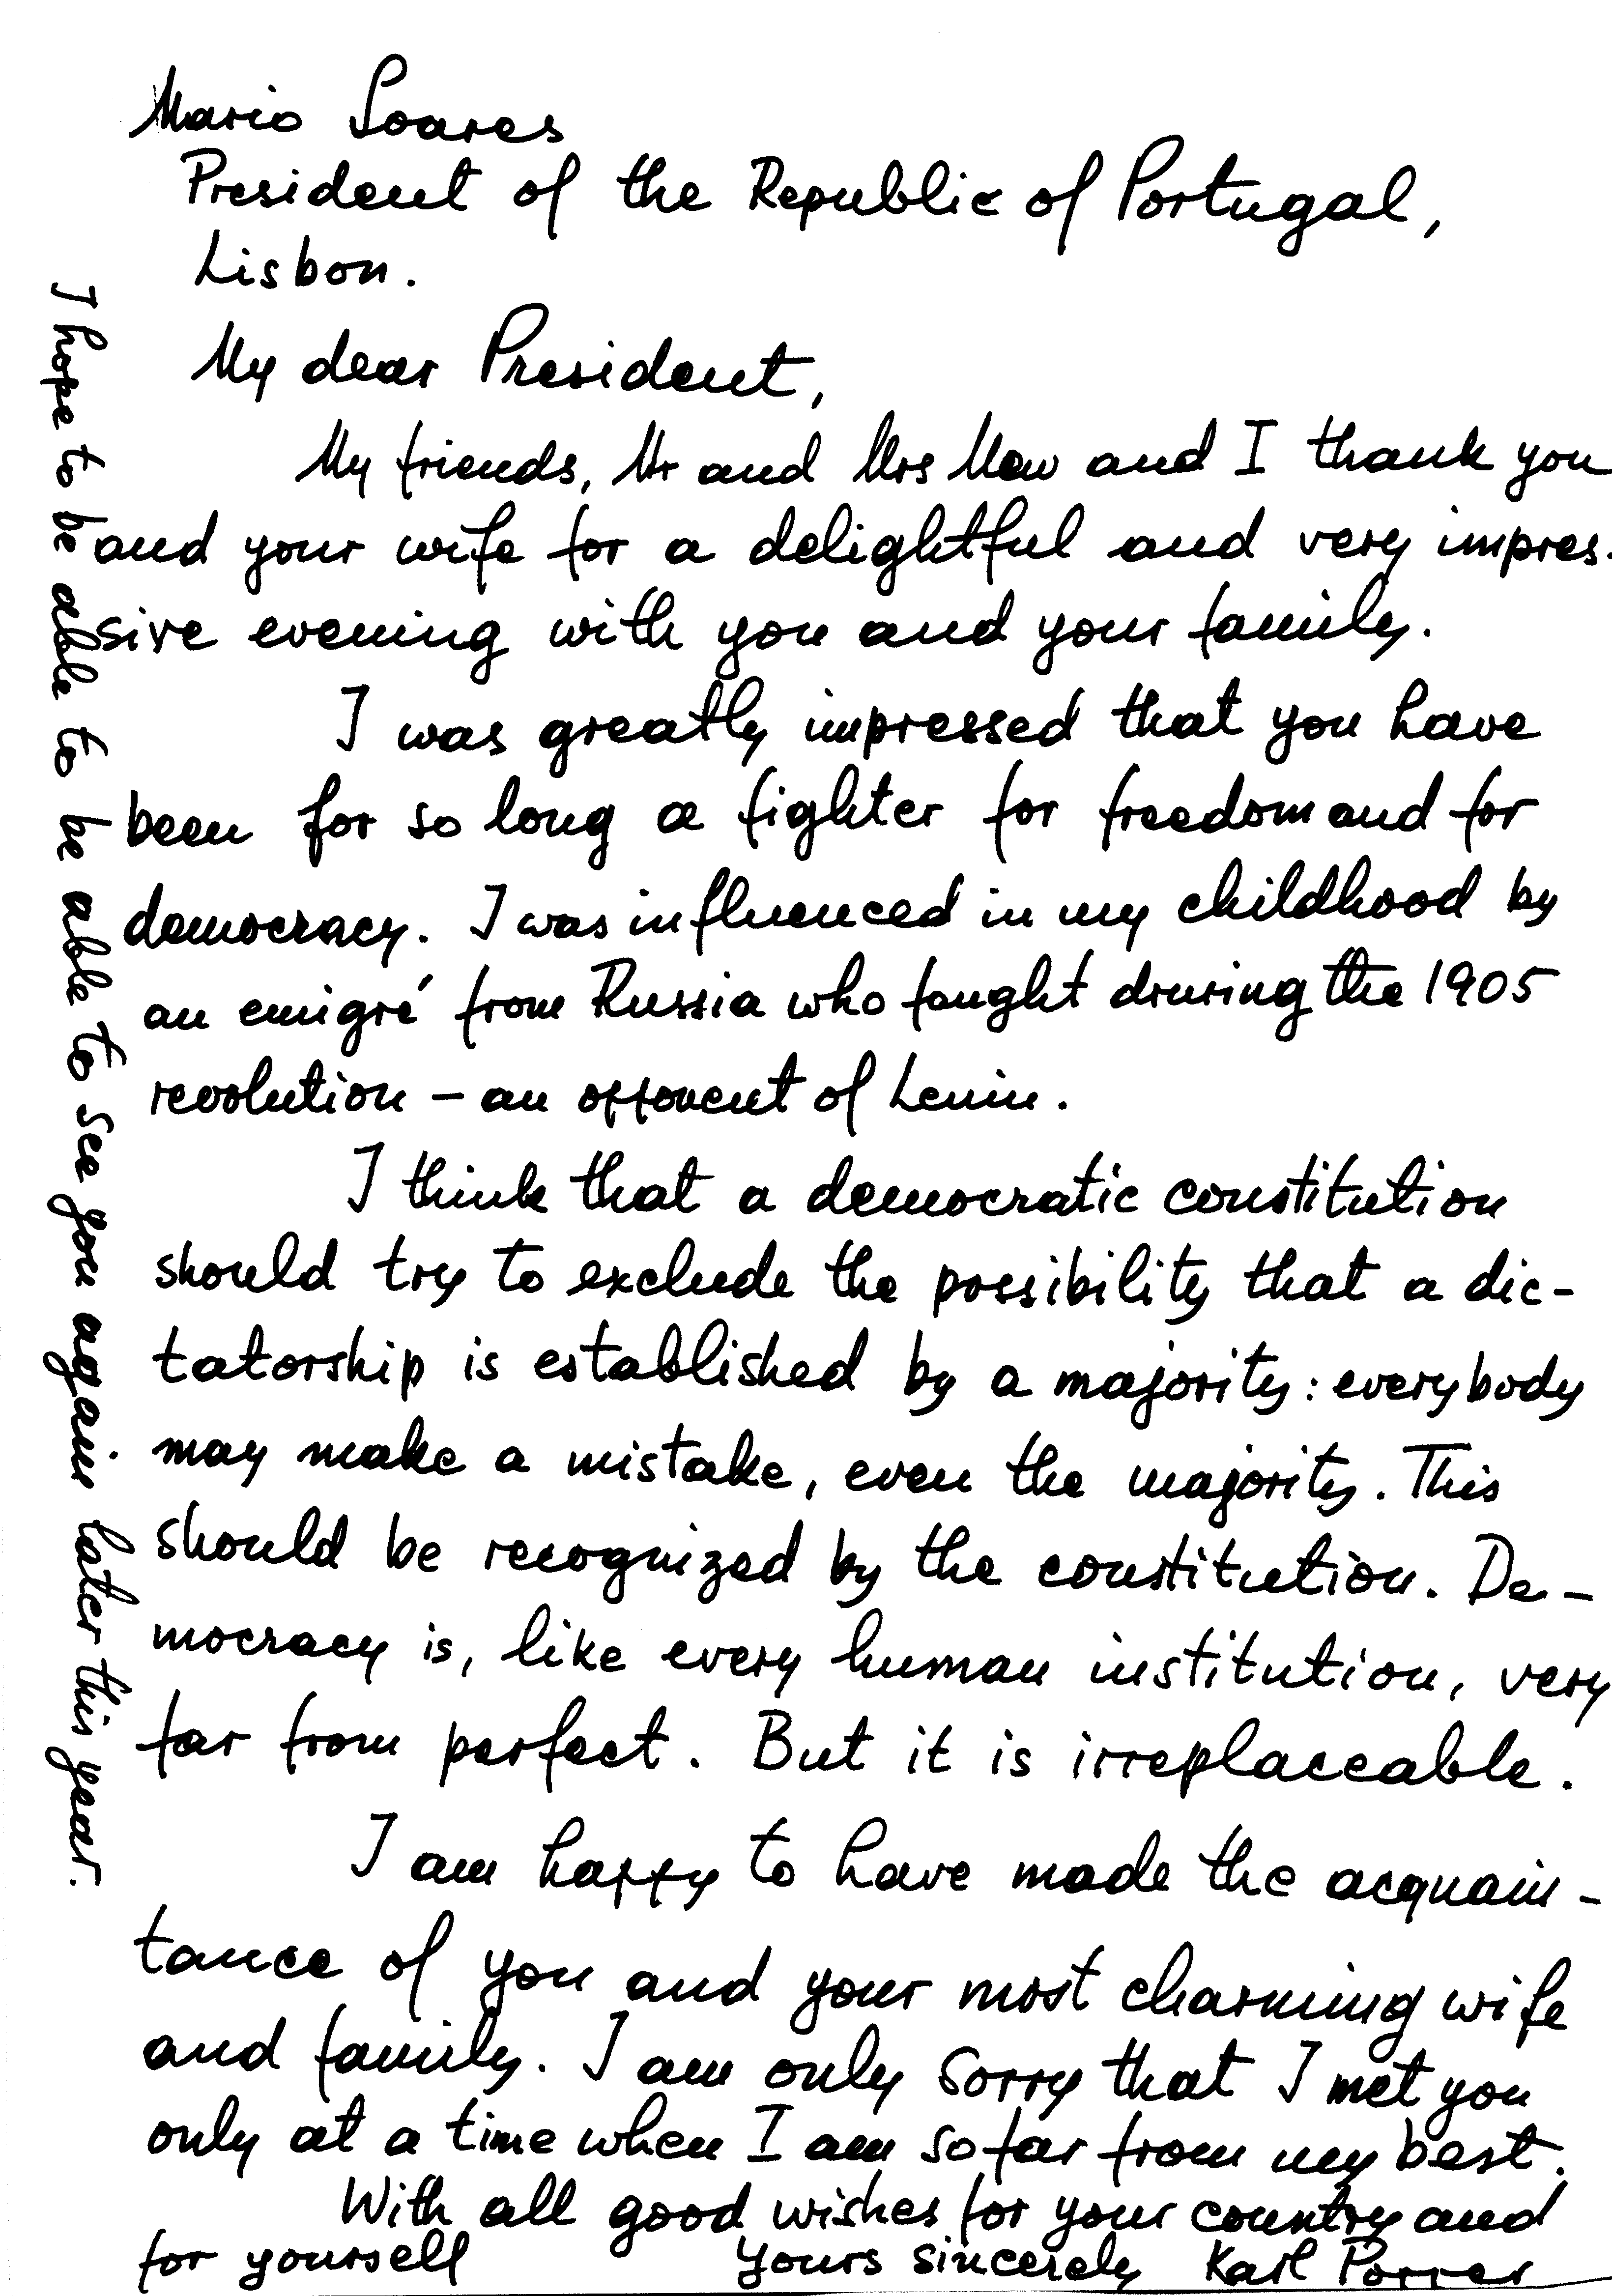 Mario Soares
President of the Republic of Portugal,
Lisbon.
My dear President,
My friends, Mr and Mrs Mew and I thank you
and your wife for a delightful and very impres-
sive evening with you and your family.
I was greatly impressed that you have
been for so long a fighter for freedom and for
democracy. I was influenced in my childhood by
an emigré from Russia who fought druring the 1905
revolution – an opponent of Lenin.
I think that a democratic constitution
should try to exclude the possibility that a dic-
tatorship is established by a majority: everybody
may make a mistake, even the majority. This
should be recognized by the constitution. De-
mocracy is, like every human institution, very
far from perfect. But it is irreplaceable.
I am happy to have made the acquain-
tance of you and your most charming wife
and family. I am only sorry that I met you
only at a time when I am so far from my best.
With all good wishes for your country and
for yourself Yours sincerely Karl Popper
I hope to be able to be able to see you again later this year.